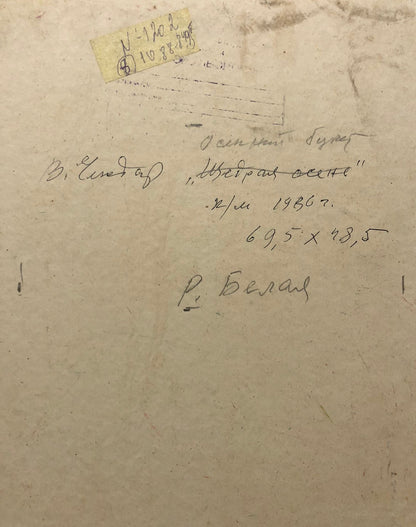 N-1202
10.88.
Осенний букет
В. Чендар "Щедрая осень"
к/м 1986 г.
69,5 х 48,5
Р. Белая